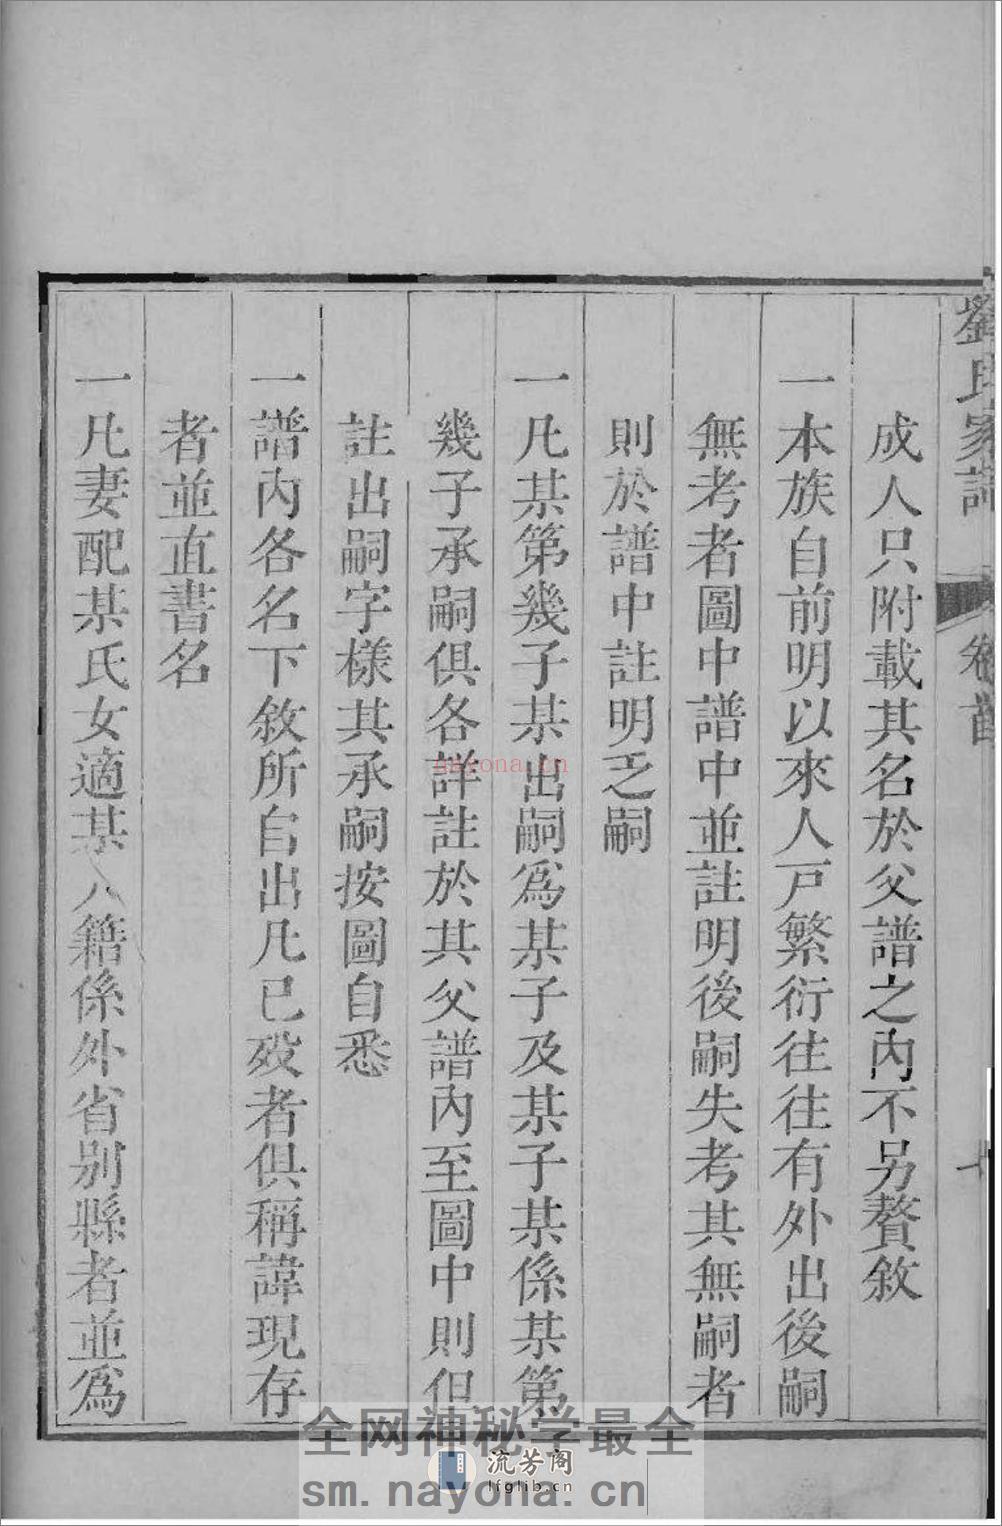 劉氏家譜 卷首
成人只附載其名於父譜之內不另贅敘
一本族自前明以來人戸繁衍往往有外出後嗣
無考者圖中譜中並註明後嗣失考其無嗣者
則於譜中註明乏嗣
一凡某第幾子某出嗣爲某子及某子某係某第
幾子承嗣俱各詳註於其父譜內至圖中則但
註出嗣字樣其承嗣按圖自悉
一譜內各名下敘所自出凡已歿者俱稱諱現存
者並直書名
一凡妻配某氏女適某人籍係外省別縣者並爲
nayona.cn
全网神秘学最全
流芳阁
lfglib.cn
sm.nayona.cn